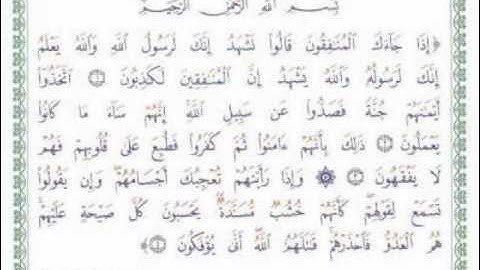 بِسْمِ اللَّهِ الرَّحْمَٰنِ الرَّحِيمِ
﴿ إِذَا جَآءَكَ الْمُنَٰفِقُونَ قَالُوا۟ نَشْهَدُ إِنَّكَ لَرَسُولُ اللَّهِ وَاللَّهُ يَعْلَمُ
إِنَّكَ لَرَسُولُهُۥ وَاللَّهُ يَشْهَدُ إِنَّ الْمُنَٰفِقِينَ لَكَٰذِبُونَ ۝١ اتَّخَذُوٓا۟
أَيْمَٰنَهُمْ جُنَّةً فَصَدُّوا۟ عَن سَبِيلِ اللَّهِ إِنَّهُمْ سَآءَ مَا كَانُوا۟
يَعْمَلُونَ ۝٢ ذَٰلِكَ بِأَنَّهُمْ ءَامَنُوا۟ ثُمَّ كَفَرُوا۟ فَطُبِعَ عَلَىٰ قُلُوبِهِمْ فَهُمْ
لَا يَفْقَهُونَ ۝٣ ۞ وَإِذَا رَأَيْتَهُمْ تُعْجِبُكَ أَجْسَامُهُمْ ۖ وَإِن يَقُولُوا۟
تَسْمَعْ لِقَوْلِهِمْ ۖ كَأَنَّهُمْ خُشُبٌ مُّسَنَّدَةٌ ۖ يَحْسَبُونَ كُلَّ صَيْحَةٍ عَلَيْهِمْ ۚ
هُمُ الْعَدُوُّ فَاحْذَرْهُمْ ۚ قَٰتَلَهُمُ اللَّهُ ۖ أَنَّىٰ يُؤْفَكُونَ ۝٤ ﴾